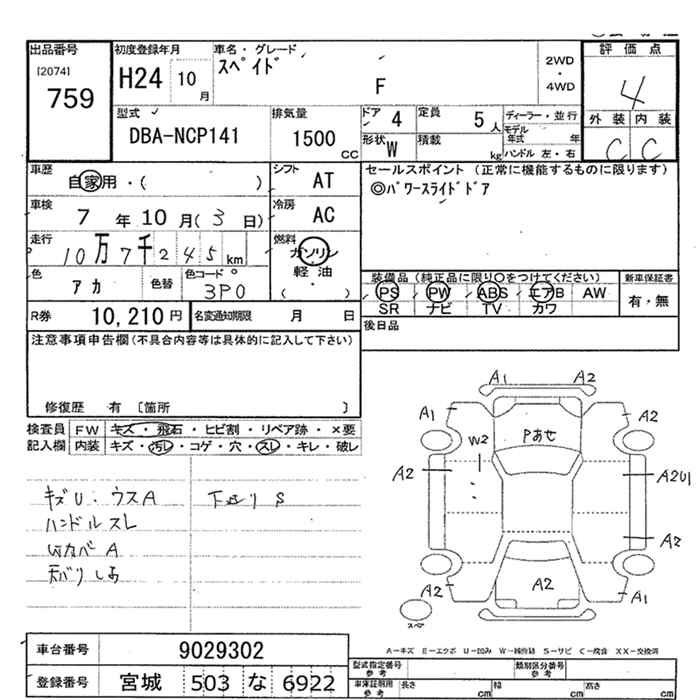 出品番号 初度登録年月 車名・グレード 評価点
[2074] 759
H24 10月 スペイド F
2WD・4WD
4
型式 DBA-NCP141
排気量 1500cc
ドア 4 定員 5人
形状 W 積載 kg
ディーラー・並行
モデル年式 年
ハンドル 左・右
外装 内装
C C
車歴 自家用・( )
シフト AT
セールスポイント (正常に機能するものに限ります)
◎パワースライドドア
車検 7年10月(3日)
冷房 AC
走行 10万7千245km
燃料 ガソリン 軽油 ( )
色 アカ 色替 色コード 3P0
装備品(純品に限り〇をつけてください) 新車保証書
PS PW ABS エアB AW
SR ナビ TV カワ
有・無
R券 10,210円 名変通知期限 月 日
後日品
注意事項申告欄(不具合内容等は具体的に記入して下さい)
修復歴 有 [箇所 ]
検査員 FW キズ・飛石・ヒビ割・リペア跡・×要
記入欄 内装 キズ・汚レ・コゲ・穴・スレ・キレ・破レ
キズU・ウスA
下廻り S
ハンドルスレ
A
A1 A2
A1 A2
W2 Pあせ
A2 A2U1
A2
A2 A2 A1
スペア
A-キズ E-エクボ U-凹み W-補修跡 S-サビ C-腐食 XX-交換済
車台番号 9029302
型式指定番号 参考 類別区分番号 参考
登録番号 宮城 503 な 6922
車庫証明用 参考 長さ cm 幅 cm 高さ cm